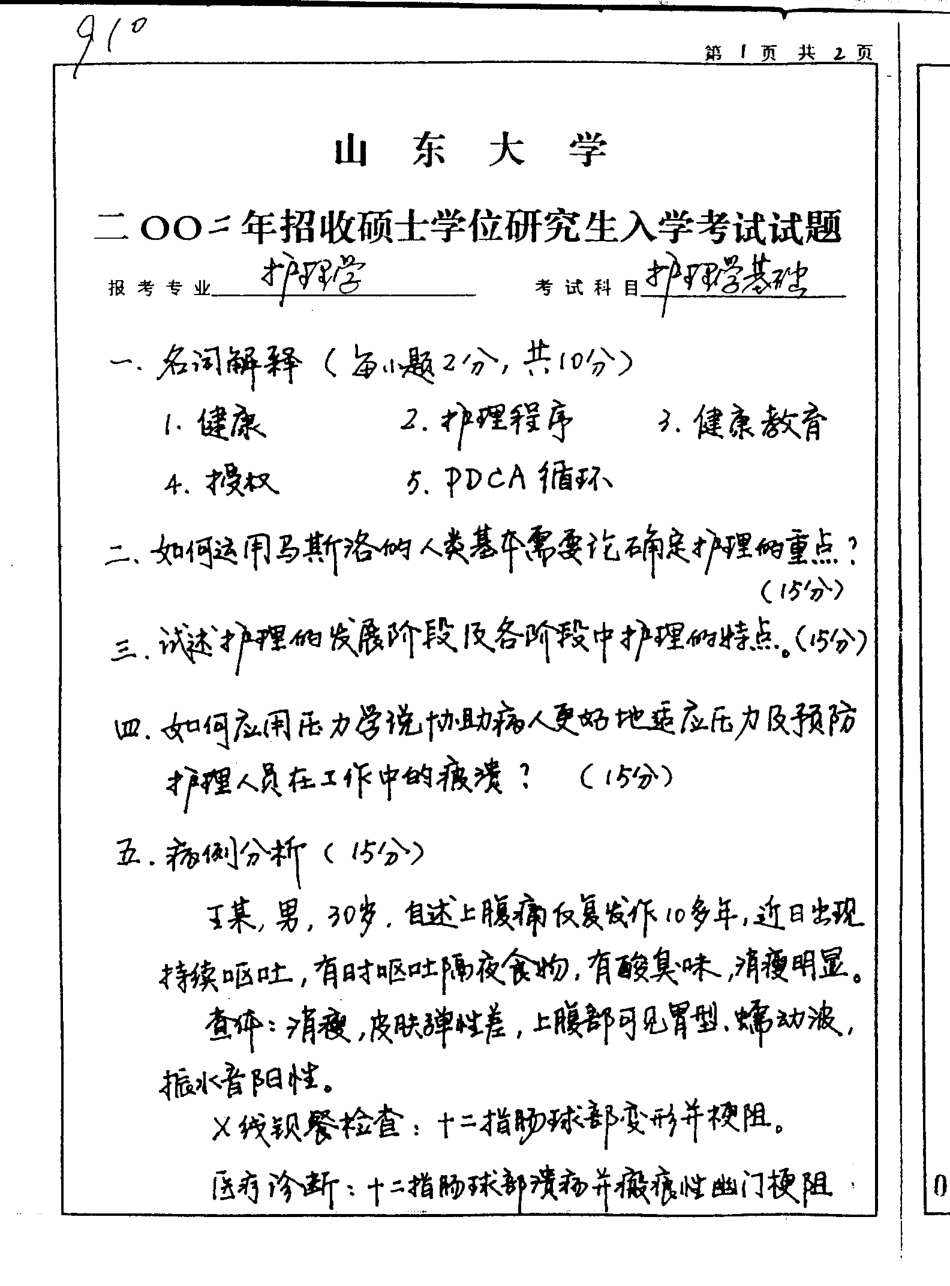 910
第1页 共2页
山东大学
二〇〇二年招收硕士学位研究生入学考试试题
报考专业 护理学 考试科目 护理学基础
一. 名词解释（每小题2分, 共10分）
1. 健康 2. 护理程序 3. 健康教育
4. 授权 5. PDCA 循环
二、如何运用马斯洛的人类基本需要论确定护理的重点?
（15分）
三. 试述护理的发展阶段及各阶段中护理的特点。（15分）
四. 如何应用压力学说协助病人更好地适应压力及预防
护理人员在工作中的疲溃? （15分）
五. 病例分析（15分）
王某, 男, 30岁. 自述上腹痛反复发作10多年, 近日出现
持续呕吐, 有时呕吐隔夜食物, 有酸臭味, 消瘦明显。
查体: 消瘦, 皮肤弹性差, 上腹部可见胃型、蠕动波,
振水音阳性。
X线钡餐检查: 十二指肠球部变形并梗阻。
医疗诊断: 十二指肠球部溃疡并瘢痕性幽门梗阻
0